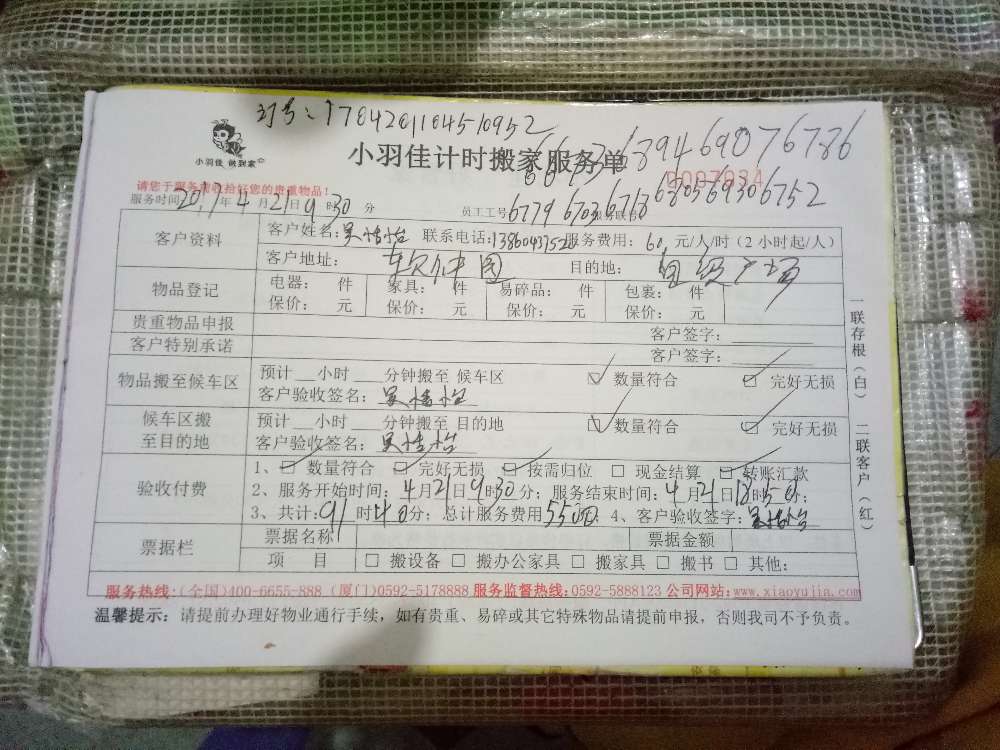 订号:1704201104510952
小羽佳 做到家
小羽佳计时搬家服务单
6894 6907 6786
0007034
请您于服务前收拾好您的贵重物品!
服务时间 2017年4月21日9时30分 员工工号 6779 6703 6718 6805 6930 6752
客户资料
客户姓名: 联系电话: 服务费用:60 元/人/时(2小时起/人)
客户地址: 软件园 目的地:
物品登记
电器: 件 家具: 件 易碎品: 件 包裹: 件
保价: 元 保价: 元 保价: 元 保价: 元
贵重物品申报 客户签字:
客户特别承诺 客户签字:
物品搬至候车区
预计 小时 分钟搬至 候车区 ☑ 数量符合 ☑ 完好无损
客户验收签名:
候车区搬至目的地
预计 小时 分钟搬至 目的地 ☑ 数量符合 ☑ 完好无损
客户验收签名:
验收付费
1、☑ 数量符合 ☑ 完好无损 ☑ 按需归位 □ 现金结算 ☑ 转账汇款
2、服务开始时间:4月21日9时30分;服务结束时间:4月21日18时50分;
3、共计:91时40分;总计服务费用5500;4、客户验收签字:
票据栏
票据名称 票据金额
项 目 □ 搬设备 □ 搬办公家具 □ 搬家具 □ 搬书 □ 其他:
一联存根(白) 二联客户(红)
服务热线:(全国)400-6655-888 (厦门)0592-5178888 服务监督热线:0592-5888123 公司网站:www.xiaoyujia.com
温馨提示:请提前办理好物业通行手续,如有贵重、易碎或其它特殊物品请提前申报,否则我司不予负责。